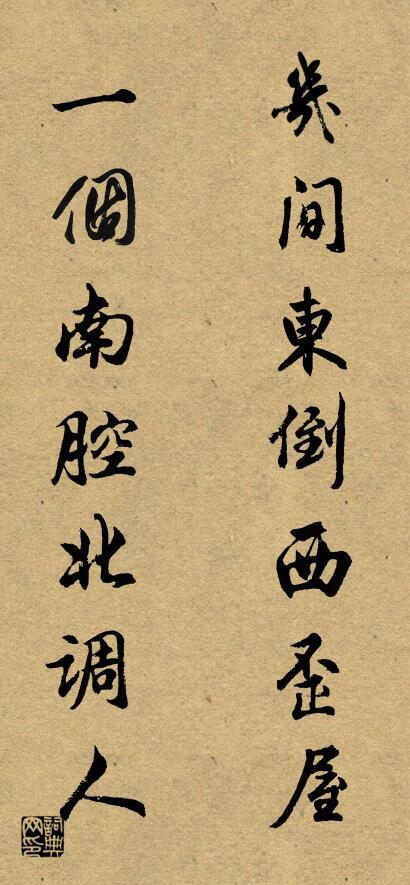 幾間東倒西歪屋
一個南腔北調人
詞典網印